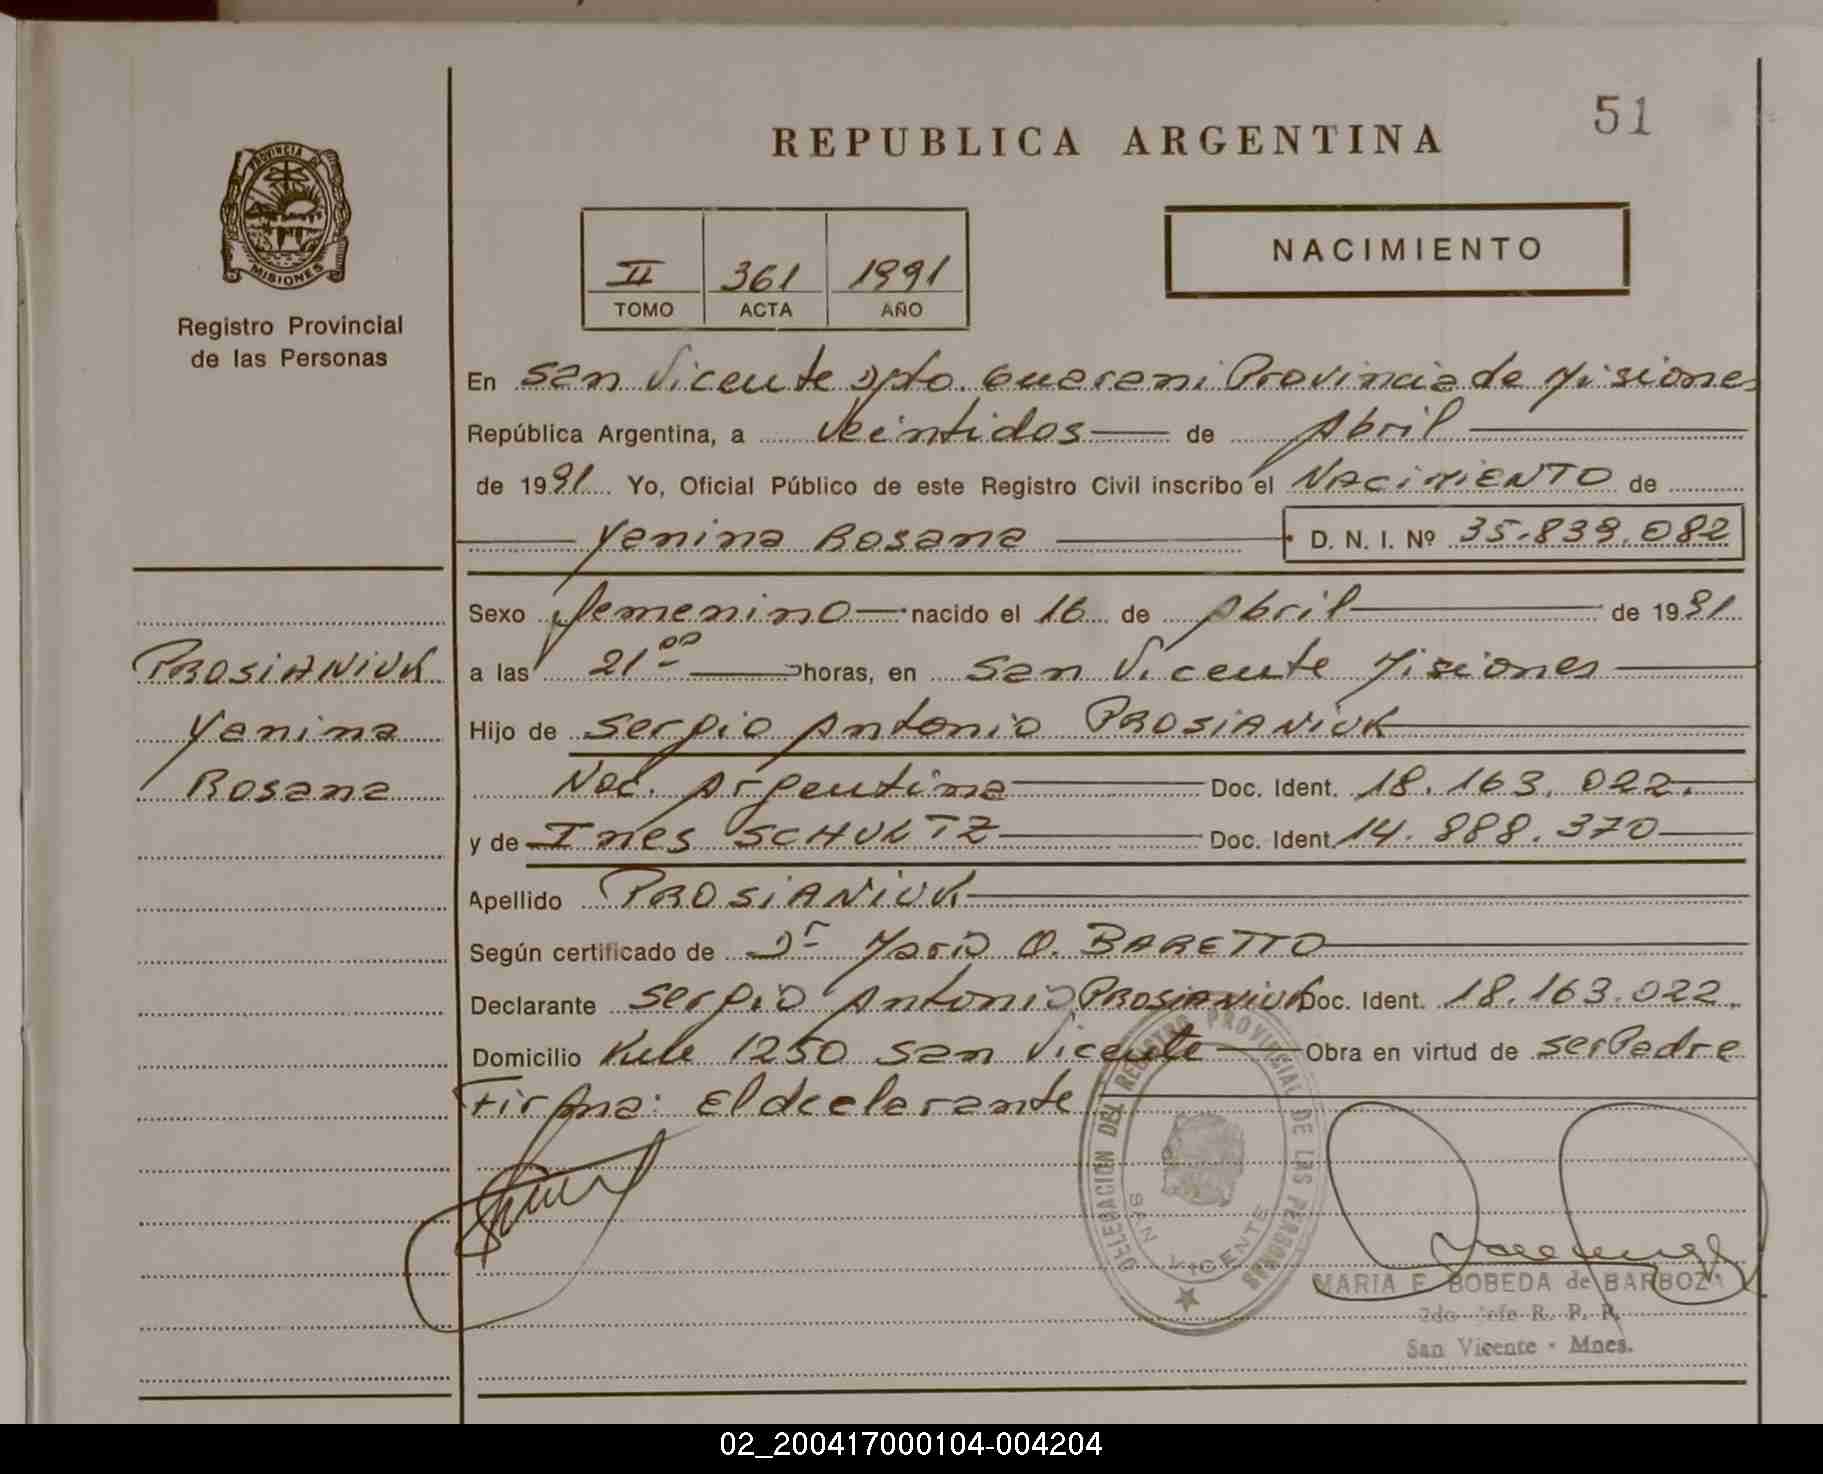 51
REPUBLICA ARGENTINA
PROVINCIA DE
MISIONES
Registro Provincial
de las Personas
NACIMIENTO
II 361 1991
TOMO ACTA AÑO
En San Vicente Dpto. Guarani Provincia de Misiones
República Argentina, a Veintidos de Abril
de 1991 Yo, Oficial Público de este Registro Civil inscribo el NACIMIENTO de
Yanina Rosana D. N. I. Nº 35.839.082
Sexo femenino nacido el 16 de Abril de 1991
a las 21 00 horas, en San Vicente Misiones
Hijo de Sergio Antonio PROSIANIUK
Nac. Argentina Doc. Ident. 18.163.022.
y de Ines SCHULTZ Doc. Ident. 14.888.370
Apellido PROSIANIUK
Según certificado de Dr Mario O. BARETTO
Declarante Sergio Antonio PROSIANIUK Doc. Ident. 18.163.022.
Domicilio Km 1250 San Vicente Obra en virtud de ser Padre
Firma: El declarante
PROSIANIUK
Yanina
Rosana
DELEGACION DEL REGISTRO PROVINCIAL DE LAS PERSONAS
SAN VICENTE
MARIA E. BOBEDA de BARBOZA
2do Jefe R. P. P.
San Vicente - Mnes.
02_200417000104-004204